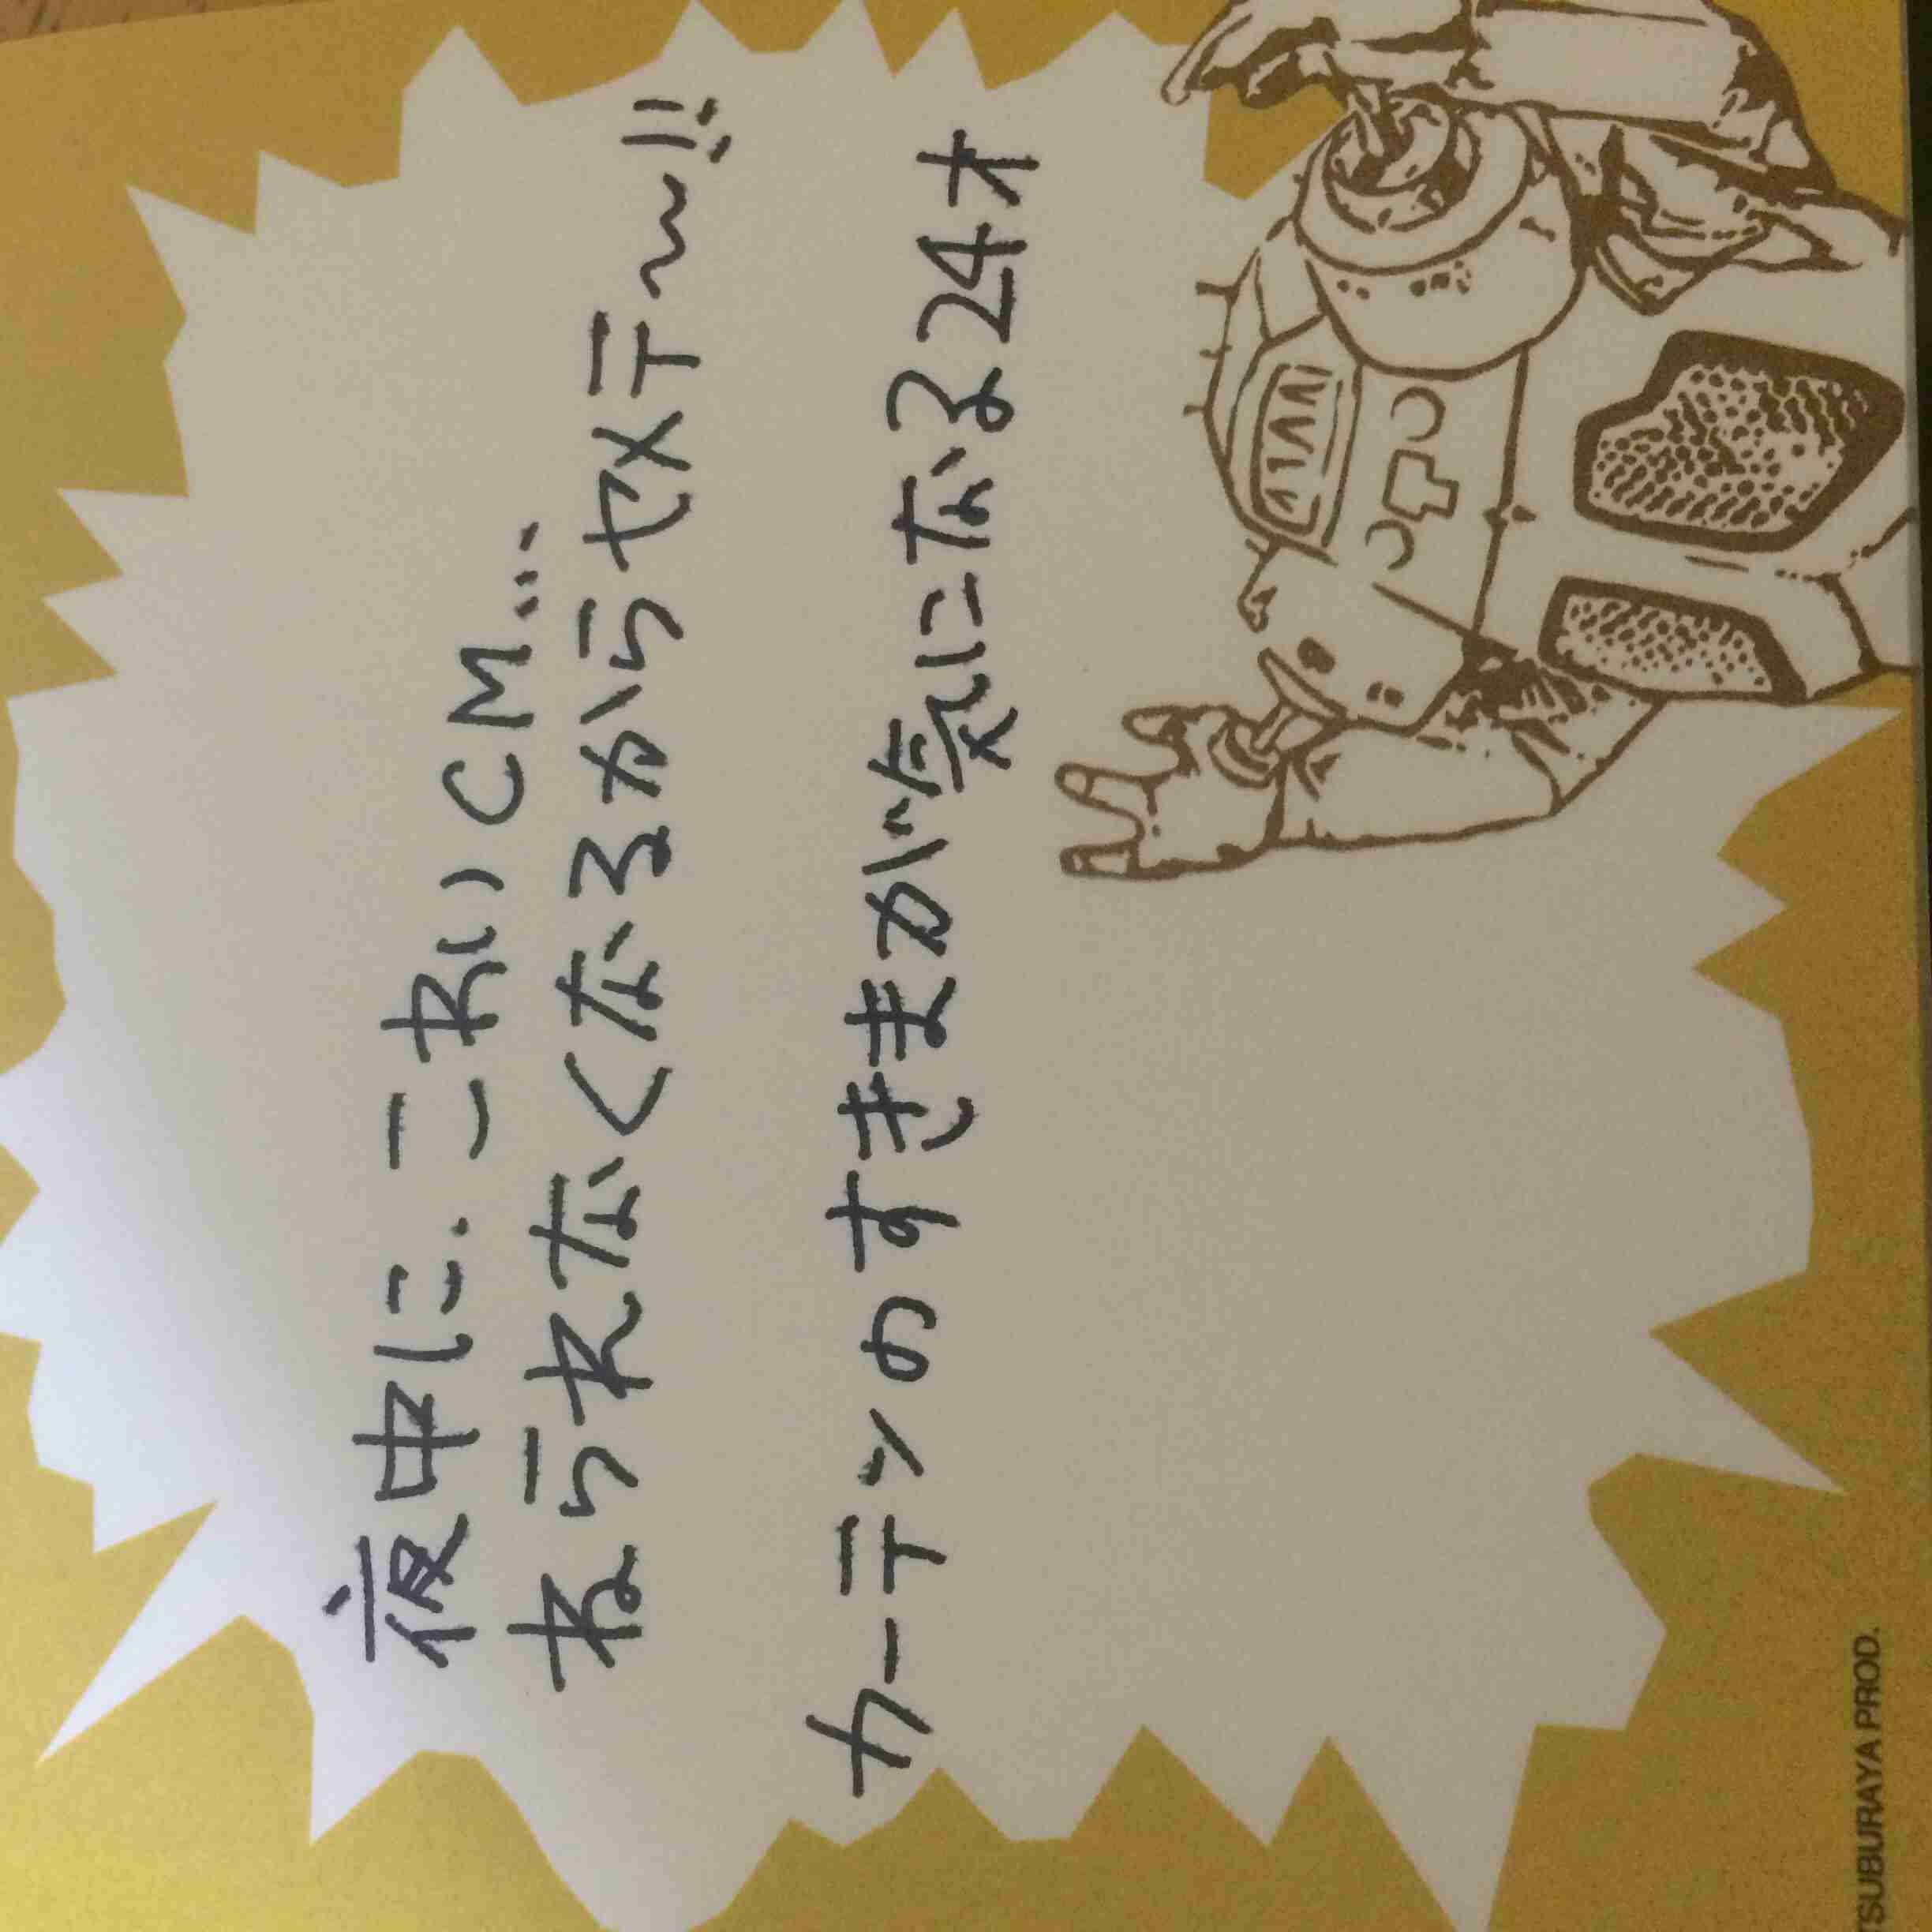 夜中に.こわいCM...
ねられなくなるからヤメテ〜!!
カーテンのすきまが気になる24才
TSUBURAYA PROD.